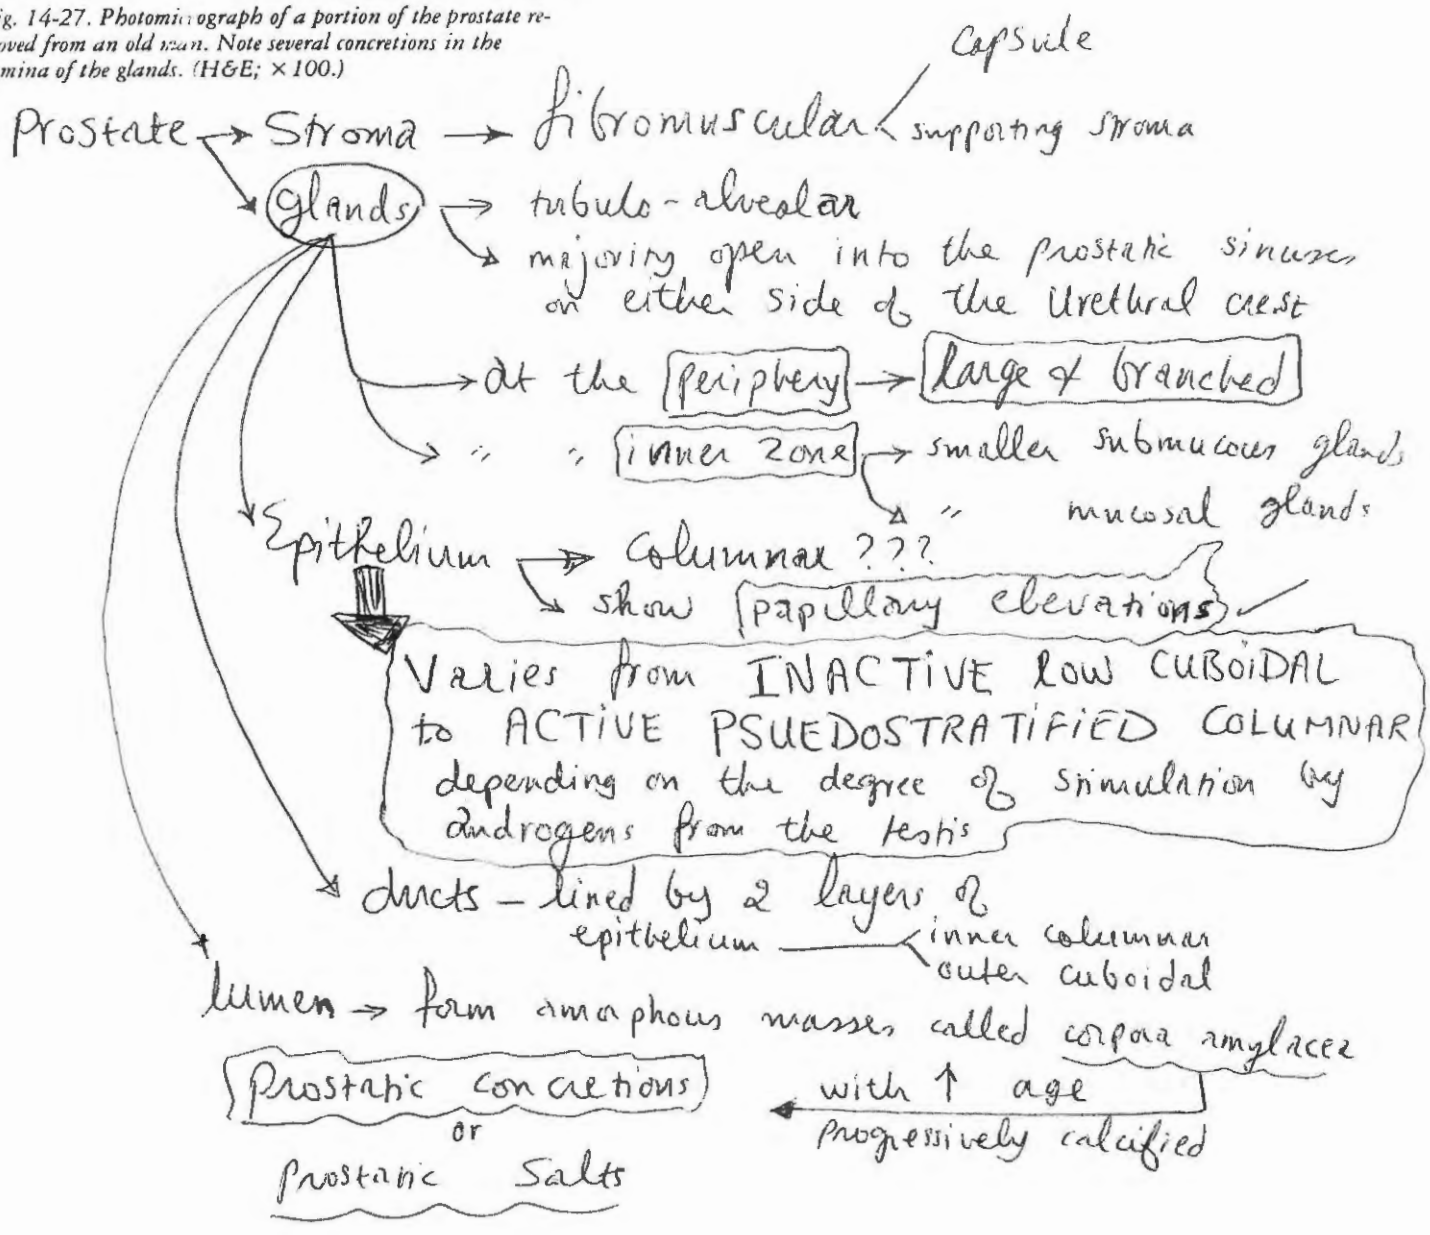 ig. 14-27. Photomicrograph of a portion of the prostate re-
oved from an old man. Note several concretions in the
mina of the glands. (H&E; ×100.)
capsule
Prostate → Stroma → fibromuscular < supporting stroma
glands → tubulo-alveolar
→ majority open into the prostatic sinuses
on either side of the Urethral crest
→ at the periphery → large & branched
→ " " inner zone → smaller submucous glands
→ " mucosal glands
Epithelium → columnar ???
→ show papillary elevations ✓
Varies from INACTIVE low CUBOIDAL
to ACTIVE PSUEDOSTRATIFIED COLUMNAR
depending on the degree of stimulation by
androgens from the testis
ducts – lined by 2 layers of
epithelium < inner columnar
outer cuboidal
lumen → form amorphous masses called corpora amylacea
Prostatic concretions
with ↑ age
or
progressively calcified
Prostatic Salts